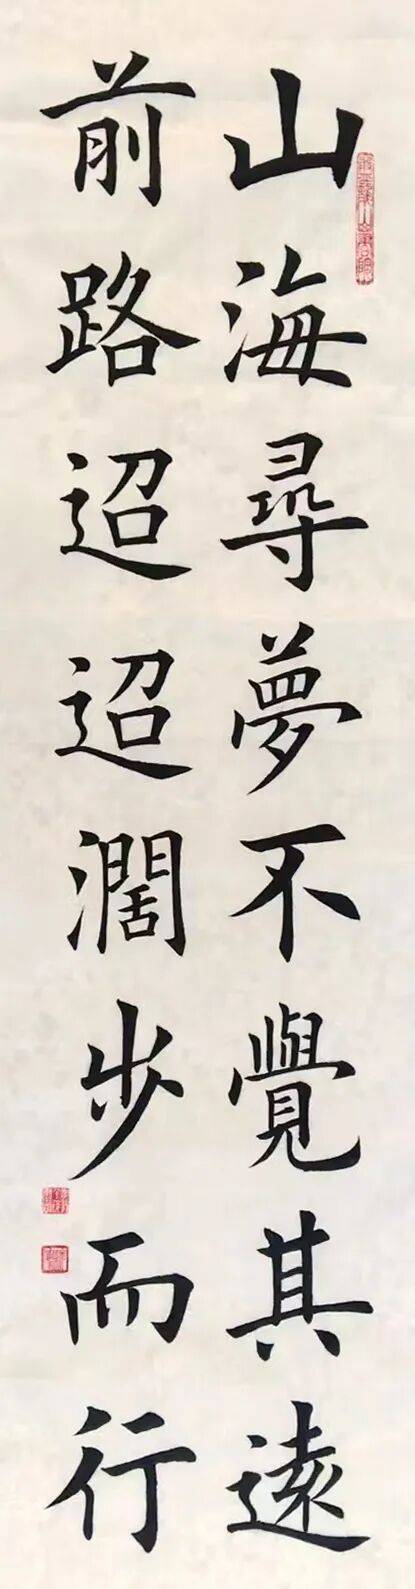 山海尋夢不覺其遠
前路迢迢濶步而行